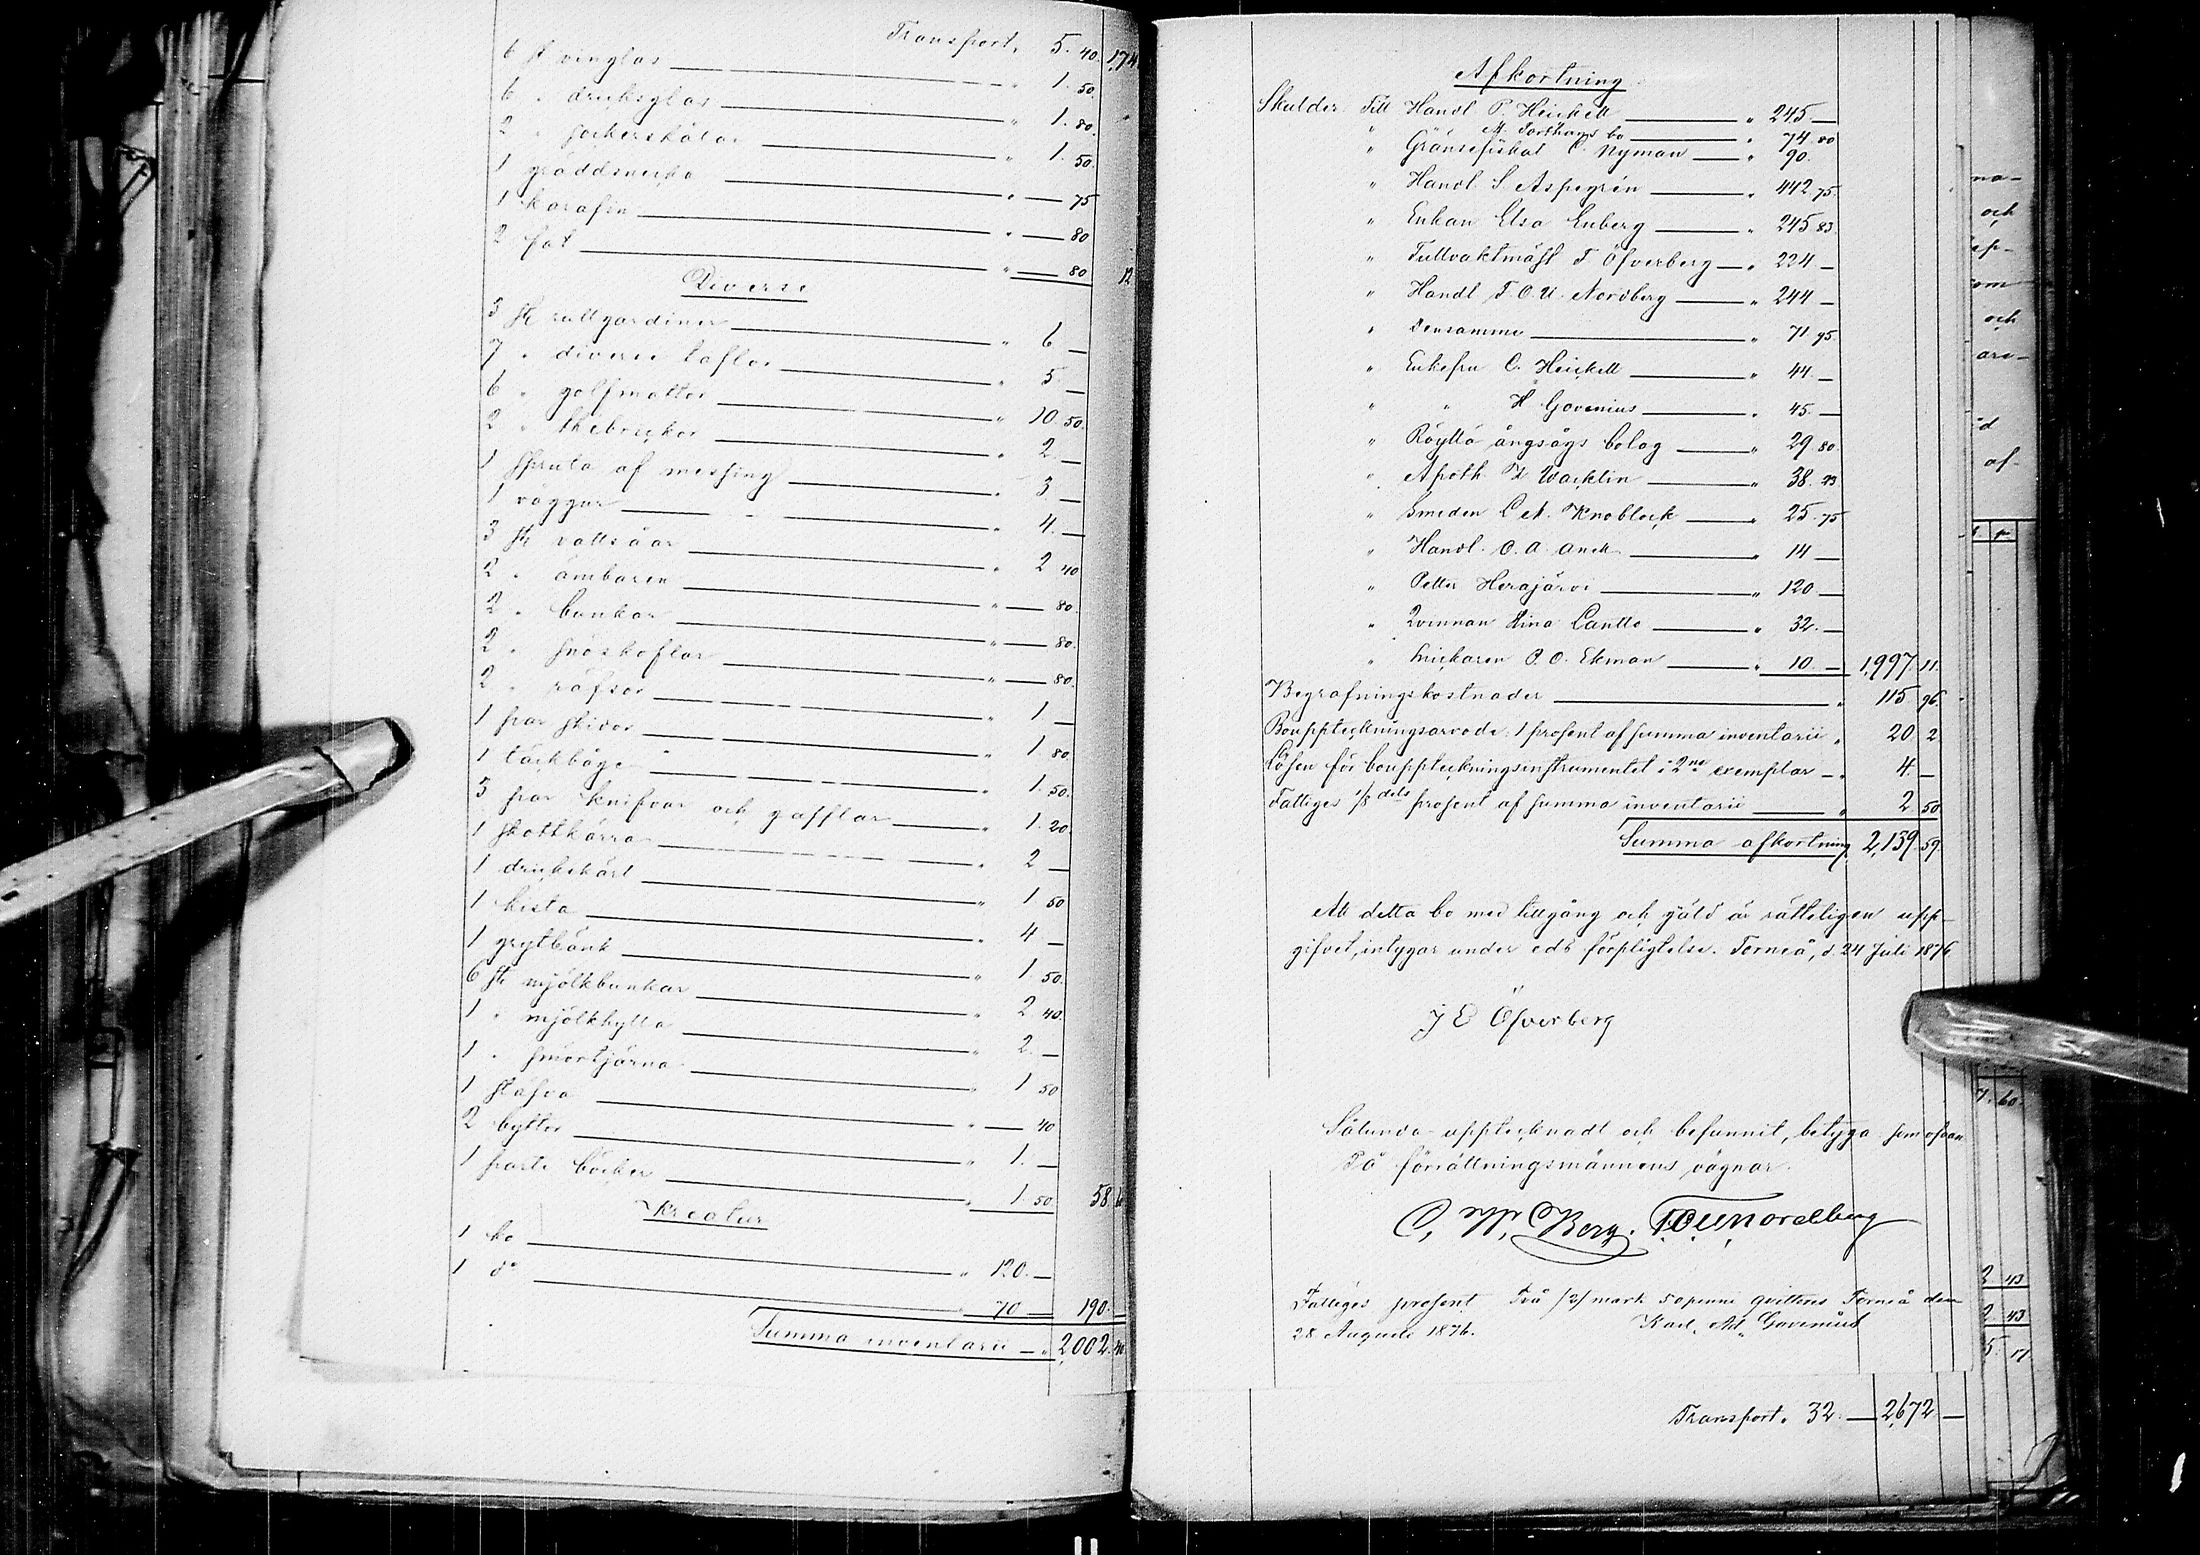 Transport, 5. 40. 174
6 st vinglas " 1. 50.
6 " dricksglas " 1. 80.
2 " sockerskålar " 1. 50.
1 gräddsnecka " — 75
1 karafin " — 80
2 fat " — 80 12
Diverse
3 st rullgardiner " 6 —
7 " diverse taflor " 5 —
6 " golfmattor " 10. 50.
2 " thebrickor " 2. —
1 spruta af messing " 3 —
1 vagga " 4. —
3 st vattsåar " 2 40
2 " ämbaren " — 80.
2 " bunkar " — 80.
2 " snöskoflar " — 80.
2 " räfsor " 1 —
1 par skidor " 1. 80
1 täckbåge " 1. 50.
3 par knifvar och gafflar " 1. 20
1 skottkärra " 2 —
1 drickskärl " 1 50
1 kista " 4 —
1 grytbänk " 1 50.
6 st mjölkbunkar " 2 40.
1 " mjölkhylla " 2. —
1 " smörtjärna " 1 50
1 stäfva " — 40
2 byttor " 1. —
1 parti böcker " 1. 50. 58.
Kreatur
1 ko " 120. —
1 d° " 70 — 190. —
Summa inventarii — " 2,002.
Afkortning
Skulder Till Handl P. Heickell " 245 —
" M. Porthans bo " 74. 80
" Gränsefiskal C. Nyman " 90.
" Handl. S. Aspegrén " 442. 75.
" Enkan Elsa Enberg " 245 83.
" Tullvaktmäst T Öfverberg " 224. —
" Handl F. O. U. Nordberg " 244 —
" Densamme " 71. 95.
" Enkefru C. Heickell " 44. —
" " H Govenius " 45. —
" Röyttä ångsågs bolag " 29. 80.
" Apoth. Z Wacklin " 38. 43
" Smeden C A. Knoblock " 25. 75
" Handl. O. A. Anck " 14 —
" Petter Herajärvi " 120. —
" Qvinnan Stina Cantto " 32. —
" Snickaren P. O. Ekman " 10. — 1,997. 11.
Begrafningskostnader " 115 96.
Bouppteckningsarvode: 1 prosent af summa inventarii " 20 2
Lösen för bouppteckningsinstrumentet i 2ne exemplar — " 4. —
Fattiges 1/8 dels prosent af summa inventarii " 2 50
Summa afkortning 2,139. 59.
Att detta bo med tillgång och gäld är rätteligen upp-
gifvet, intygar under eds förpligtelse. Torneå, d. 24 Juli 1876
J E Öfverberg
Sålunda upptecknadt och befunnit, betyga som ofvan
På förrättningsmännens vägnar.
C. W. Berg. F.O.U. Nordberg
Fattiges prosent Två /2/ mark 50 penni qvitteras Torneå den
28 Augusti 1876. Karl. Ad. Govenius
Transport. 32. — 2,672 —
na-
och
om
och
-d
af-
7. 60.
2 43
2. 43
5. 17